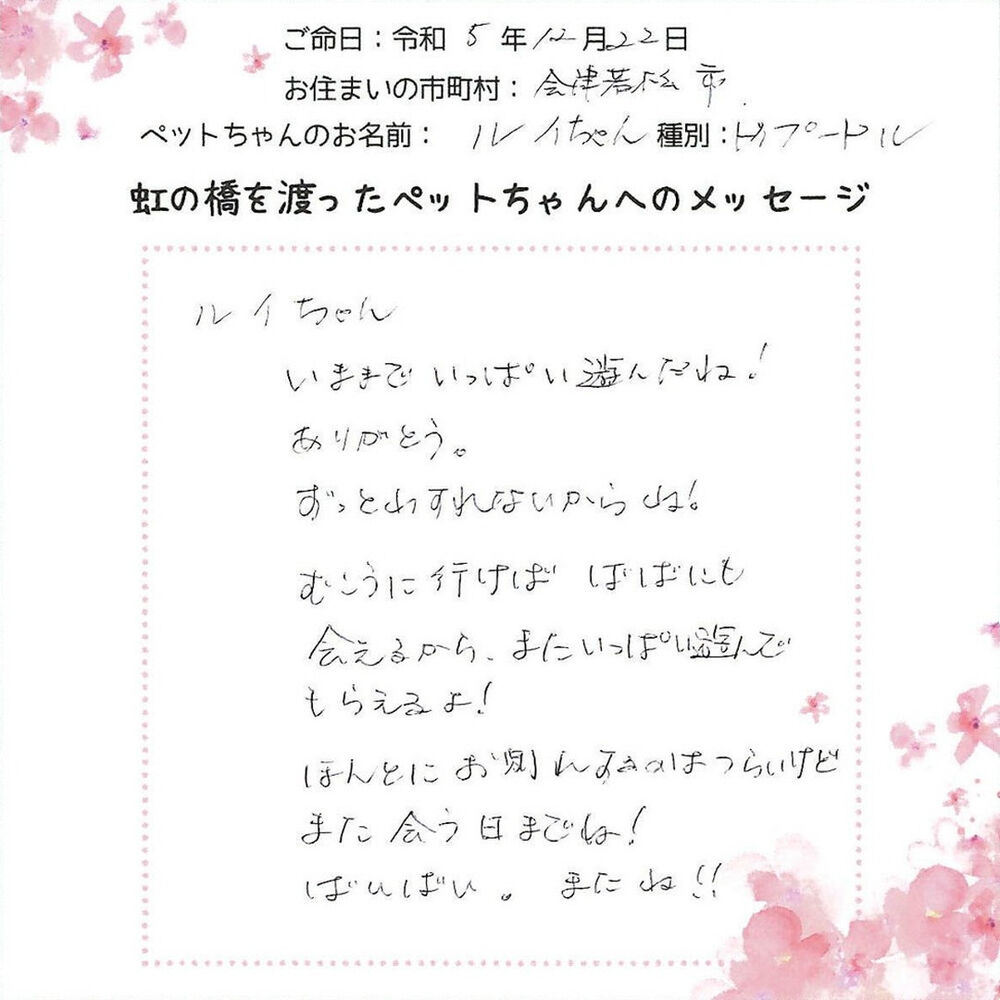 ご命日：令和5年12月22日
お住まいの市町村：会津若松市
ペットちゃんのお名前：ルイちゃん 種別：トイプードル
虹の橋を渡ったペットちゃんへのメッセージ
ルイちゃん
いままでいっぱい遊んだね！
ありがとう。
ずっとわすれないからね！
むこうに行けば ばばにも
会えるから、またいっぱい遊んで
もらえるよ！
ほんとにお別れするのはつらいけど
また会う日までね！
ばいばい。 またね!!